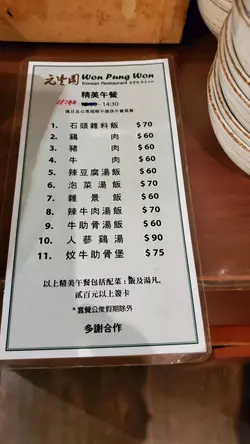 元堂園 Won Pung Won
Korean Restaurant
精美午餐
-14:30
1. 石頭雜料飯 $70
2. 鷄肉 $60
3. 豬肉 $60
4. 牛肉 $60
5. 辣豆腐湯飯 $60
6. 泡菜湯飯 $60
7. 雜景飯 $60
8. 辣牛肉湯飯 $60
9. 牛肋骨湯飯 $60
10. 人蔘鷄湯 $90
11. 炆牛肋骨堡 $75
以上精美午餐包括配菜；飯及湯凡，
貳百元以上簽卡
*套餐公衆假期除外
多謝合作